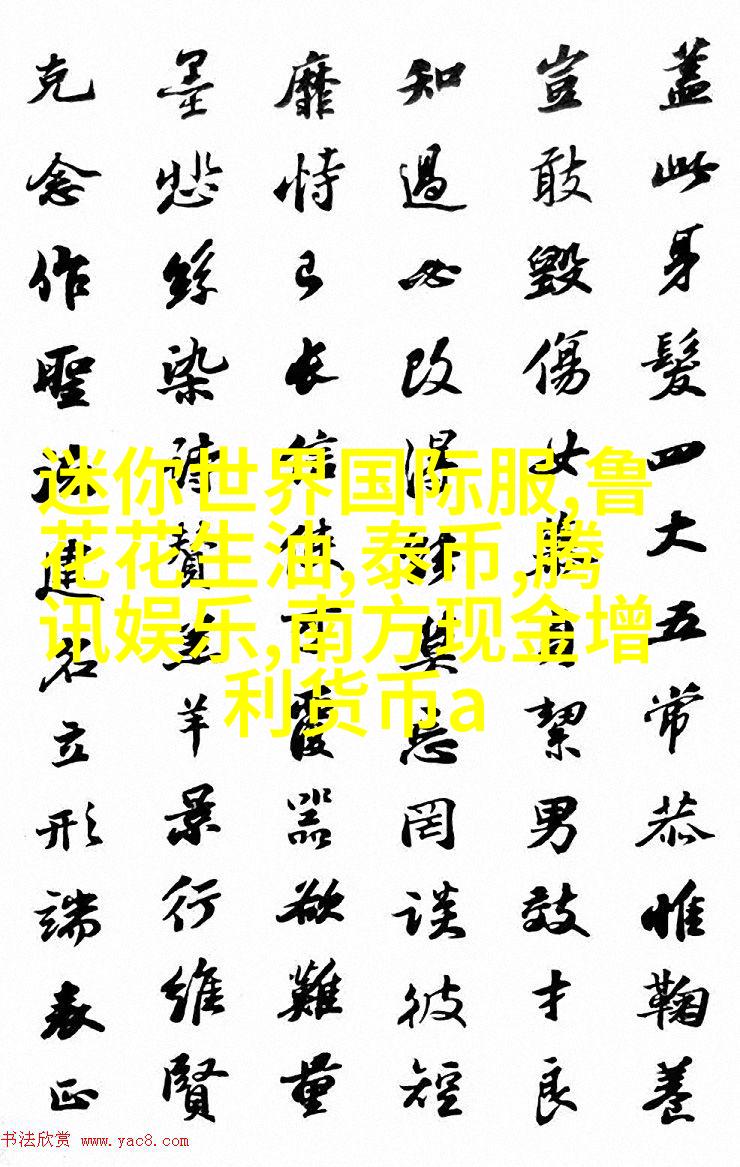 蓋此身髮四大五常恭惟鞠養
豈敢毀傷女慕貞絜男效才良
知過必改得能莫忘罔談彼短
靡恃己長信使可覆器欲難量
墨悲絲染詩贊羔羊景行維賢
克念作聖德建名立形端表正
迷你世界国际服,鲁
花花生油,泰币,腾
讯娱乐,南方现金增
利货币a
书法欣赏 www.yac8.com